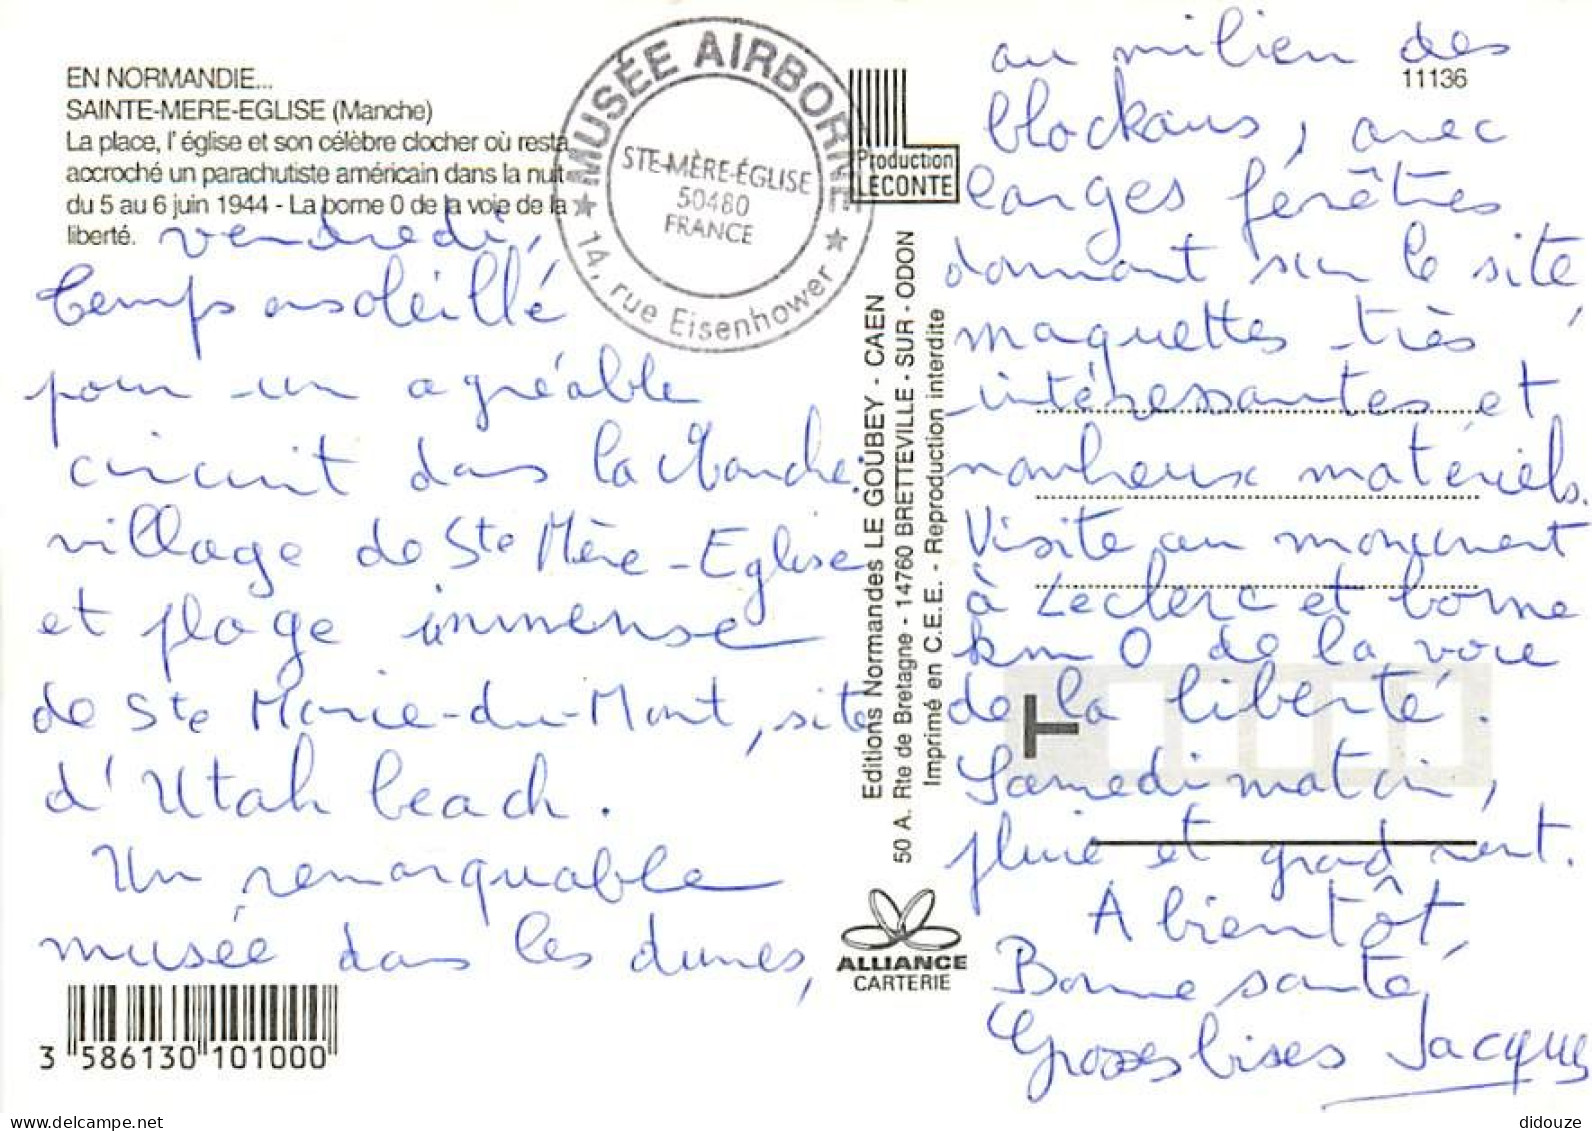 EN NORMANDIE...
SAINTE-MERE-EGLISE (Manche)
La place, l'église et son célèbre clocher où resta
accroché un parachutiste américain dans la nuit
du 5 au 6 juin 1944 - La borne 0 de la voie de la
liberté.
MUSÉE AIRBORNE
STE-MÈRE-ÉGLISE
50480
FRANCE
★ 14, rue Eisenhower ★
Production
LECONTE
11136
vendredi,
temps ensoleillé
pour un agréable
circuit dans la Manche:
village de Ste Mère-Eglise
et plage immense
de Ste Marie-du-Mont, site
d'Utah beach.
Un remarquable
musée dans les dunes,
3 586130 101000
Editions Normandes LE GOUBEY - CAEN
50 A. Rte de Bretagne - 14760 BRETTEVILLE - SUR - ODON
Imprimé en C.E.E. - Reproduction interdite
ALLIANCE
CARTERIE
au milieu des
blockaus, avec
larges fenêtres
donnant sur le site,
maquettes très
intéressantes et
nombreux matériels.
Visite au monument
à Leclerc et borne
km 0 de la voie
de la liberté.
Samedi matin,
pluie et grand vent.
A bientôt,
Bonne santé,
Grosses bises Jacques
T
delcampe.net
didouze